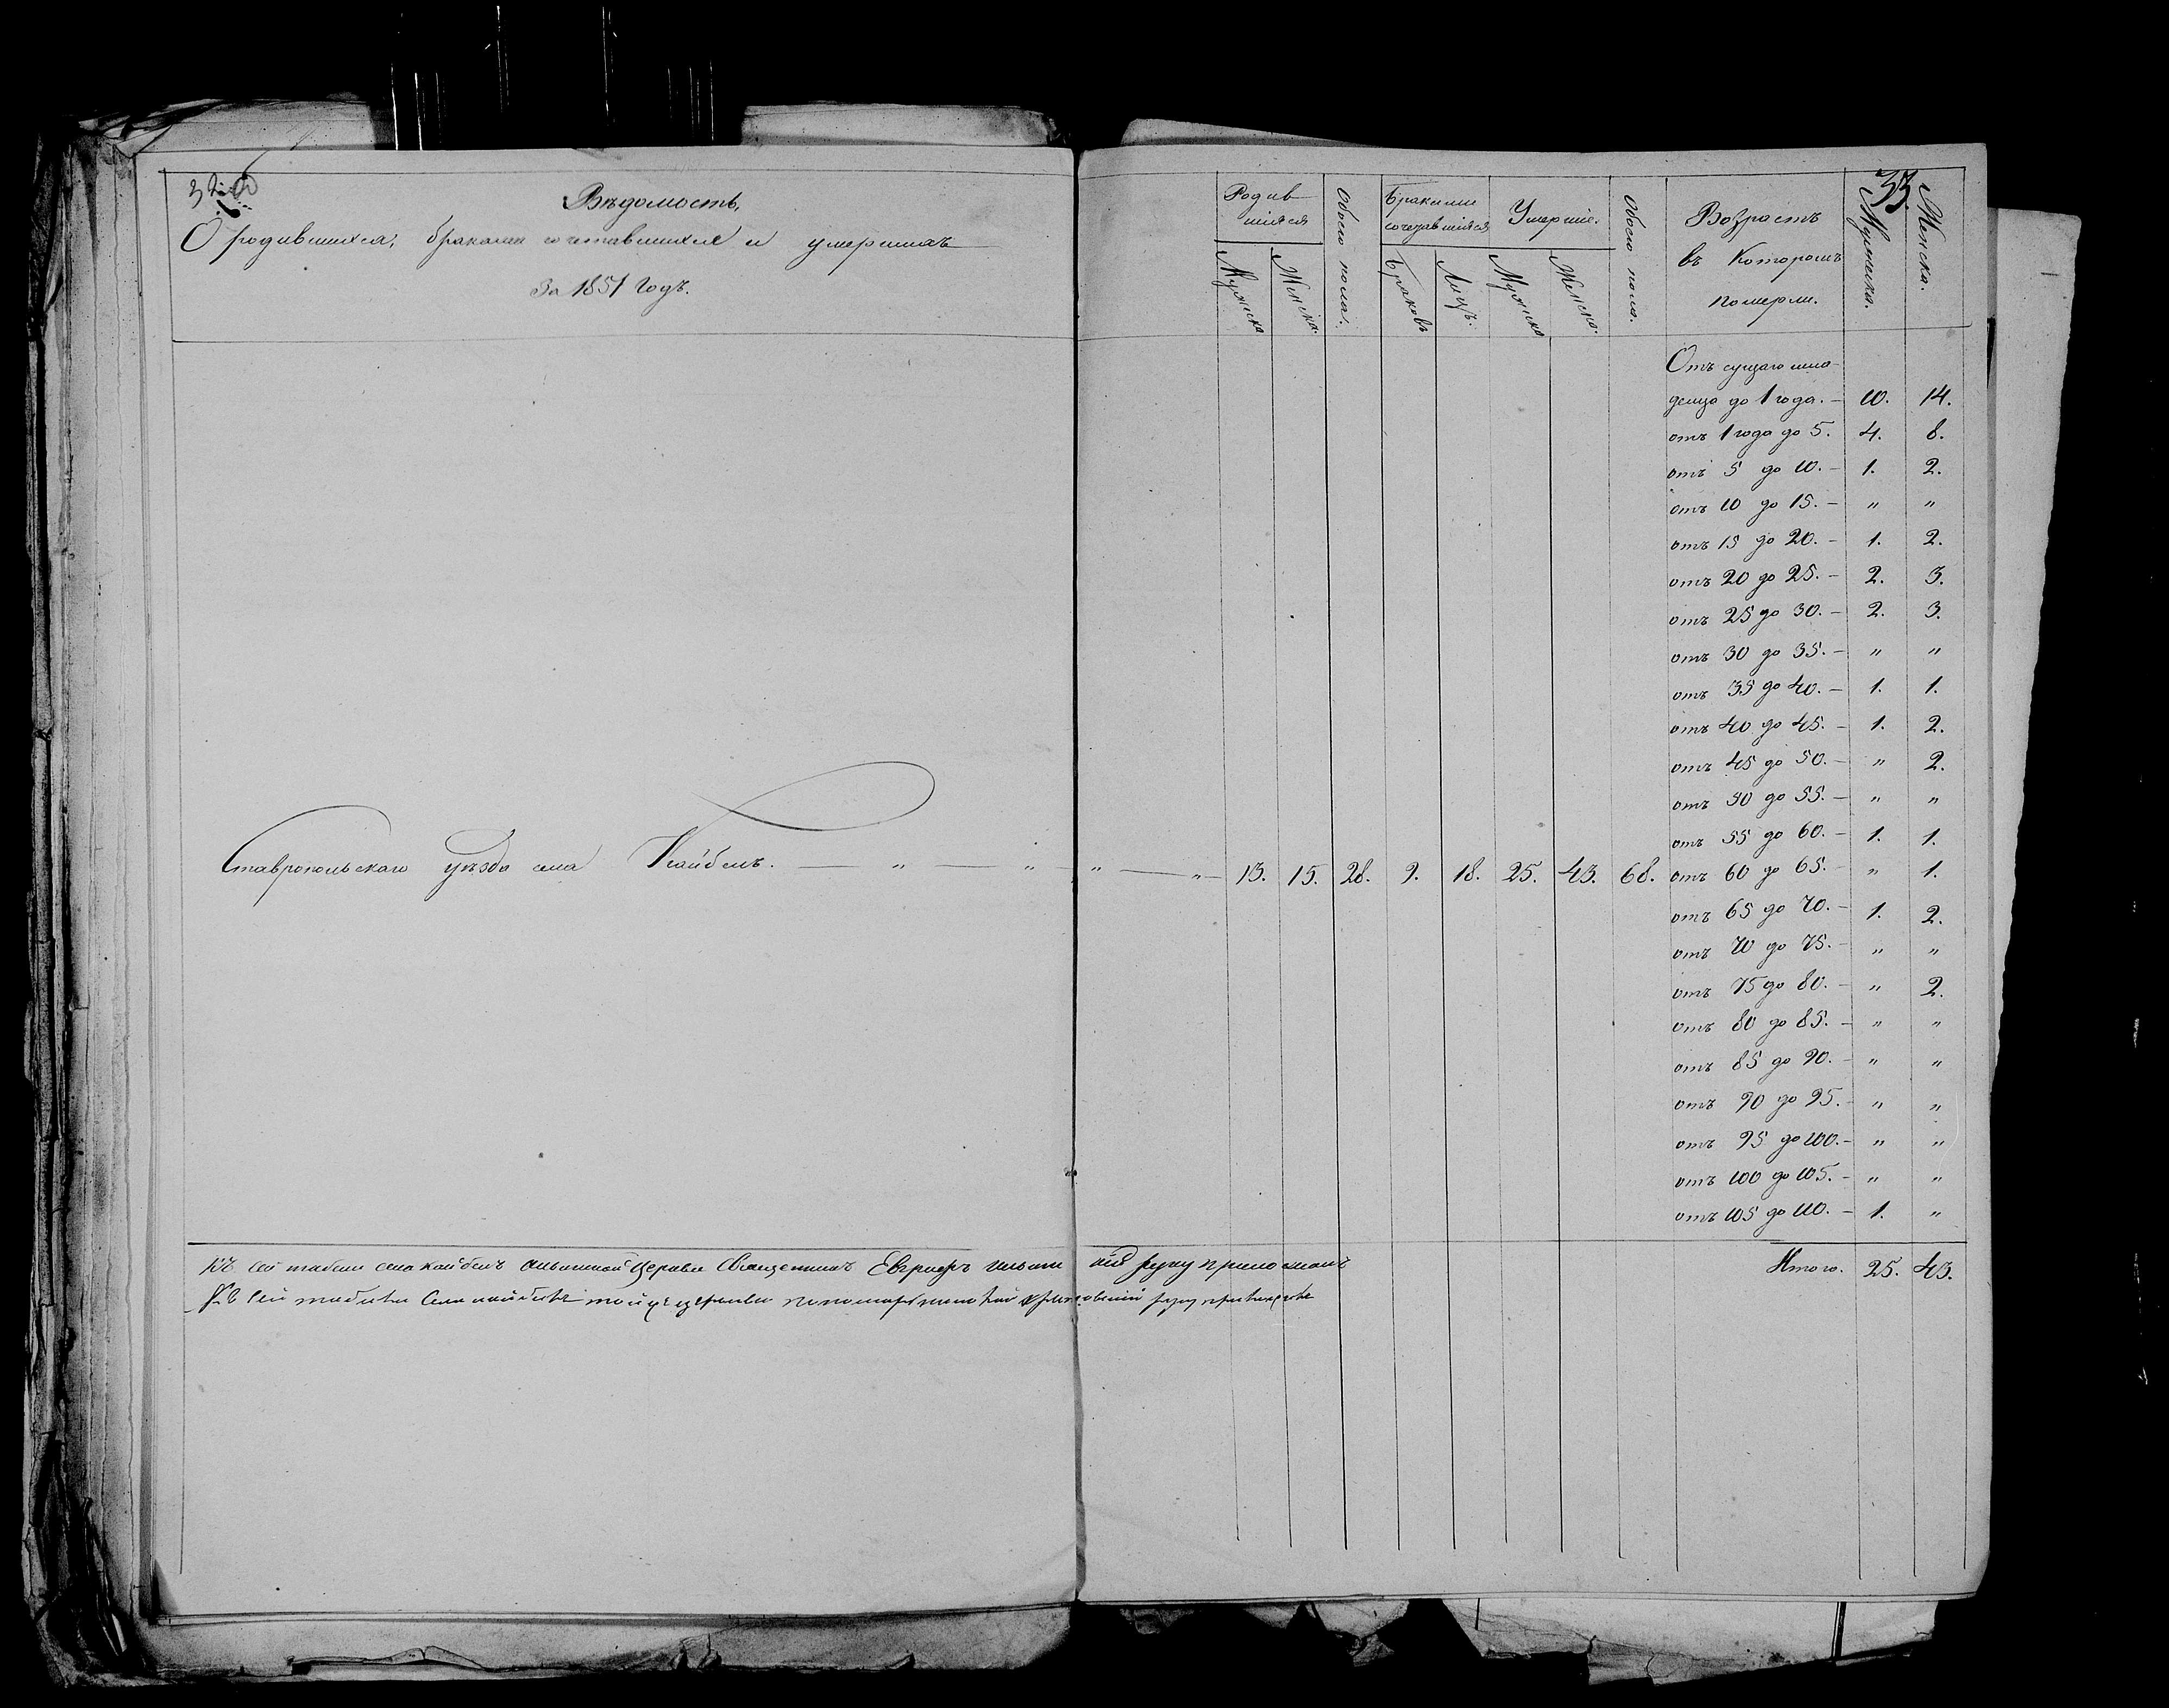 33.
Вѣдомость,
О родившихся, бракомъ сочетавшихся и умершихъ
За 1851 годъ.
Родив
шіяся
Мужеска
Женска.
Обоего пола.
Браками
сочетавшіяся
Браковъ
Лицъ.
Умершіе.
Мужеска
Женска.
Обоего пола.
Возрастъ
въ Которомъ
померли.
Мужеска.
Женска.
Отъ сущаго мла-
денца до 1 года. — 10. 14.
отъ 1 года до 5. 4. 8.
отъ 5 до 10. — 1. 2.
отъ 10 до 15. — " "
отъ 15 до 20. — 1. 2.
отъ 20 до 25. — 2. 3.
отъ 25 до 30. — 2. 3.
отъ 30 до 35. — " "
отъ 35 до 40. — 1. 1.
отъ 40 до 45. — 1. 2.
отъ 45 до 50. — " 2.
отъ 50 до 55. — " "
отъ 55 до 60. — 1. 1.
Ставропольскаго уѣзда села Кайбелъ. — " — " — " — " — 13. 15. 28. 9. 18. 25. 43. 68. отъ 60 до 65. — " 1.
отъ 65 до 70. — 1. 2.
отъ 70 до 75. — " "
отъ 75 до 80. — " 2.
отъ 80 до 85. — " "
отъ 85 до 90. — " "
отъ 90 до 95. — " "
отъ 95 до 100. — " "
отъ 100 до 105. — " "
отъ 105 до 110. — 1. "
Итого. 25. 43.
Къ сей табели села Кайбелъ Церкви Священникъ руку приложилъ
Къ сей табели села Кайбелъ той же церкви пономарь руку приложилъ